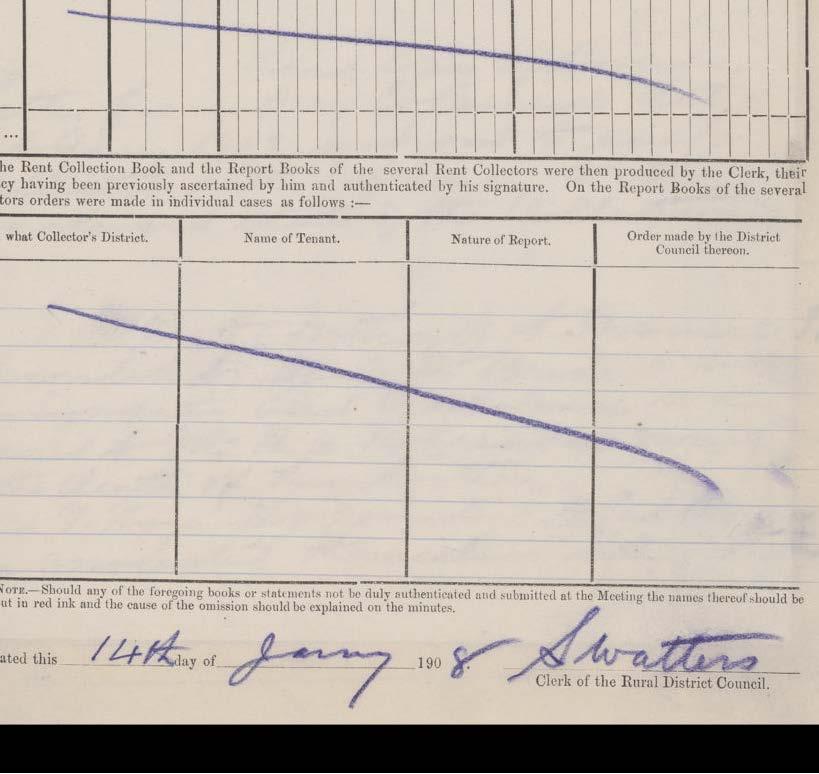 ...
he Rent Collection Book and the Report Books of the several Rent Collectors were then produced by the Clerk, their
cy having been previously ascertained by him and authenticated by his signature. On the Report Books of the several
tors orders were made in individual cases as follows :—
what Collector's District. Name of Tenant. Nature of Report. Order made by the District
Council thereon.
NOTE.—Should any of the foregoing books or statements not be duly authenticated and submitted at the Meeting the names thereof should be
ut in red ink and the cause of the omission should be explained on the minutes.
ated this 14th day of Jany 1908. S Watters
Clerk of the Rural District Council.